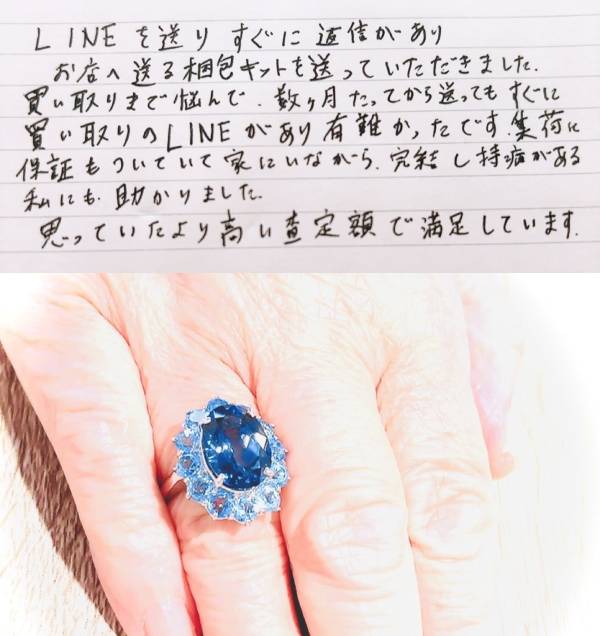 LINEを送り すぐに 返信があり
お店へ送る梱包キットを送っていただきました.
買い取りまで悩んで.数ヶ月たってから送っても すぐに
買い取りのLINEがあり有難かったです.集荷に
保証もついていて家にいながら.完結し持病がある
私にも.助かりました.
思っていたより高い査定額で満足しています.